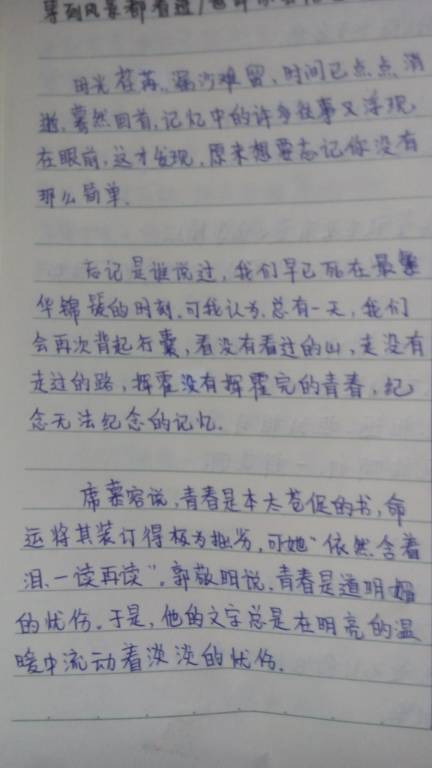 等到风景都看透/
时光荏苒、漏沙难留,时间已点点消
逝,蓦然回首,记忆中的许多往事又浮现
在眼前,这才发现,原来想要忘记你没有
那么简单.
忘记是谁说过,我们早已死在最繁
华锦簇的时刻,可我认为,总有一天,我们
会再次背起行囊,看没有看过的山,走没有
走过的路,挥霍没有挥霍完的青春,纪
念无法纪念的记忆.
席慕容说,青春是本太苍促的书,命
运将其装订得极为拙劣,可她“依然含着
泪,一读再读”,郭敬明说,青春是道明媚
的忧伤.于是,他的文字总是在明亮的温
暖中流动着淡淡的忧伤.